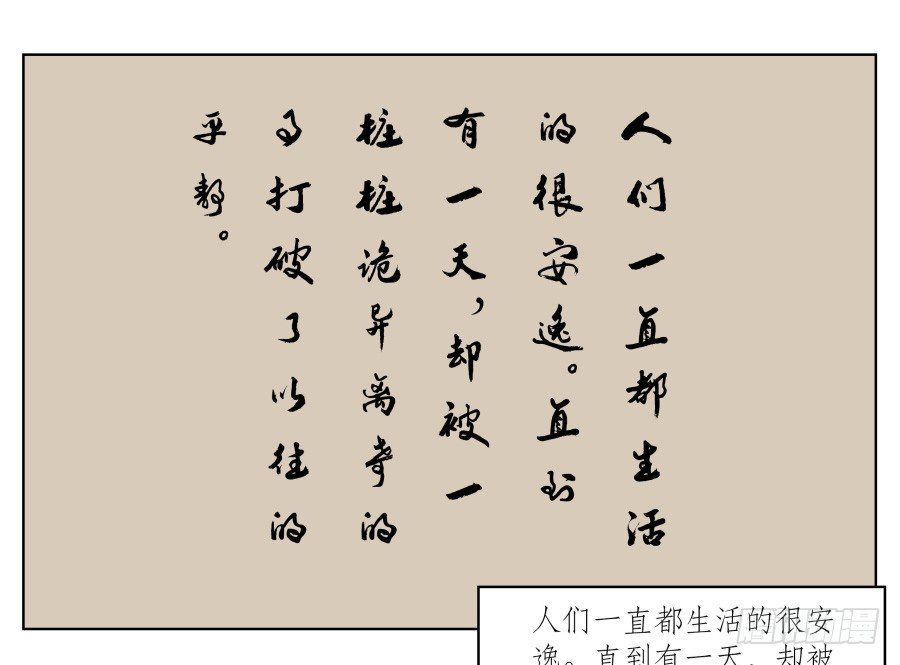 人们一直都生活
的很安逸。直到
有一天，却被一
桩桩诡异离奇的
事打破了以往的
平静。
人们一直都生活的很安
逸。直到有一天，却被